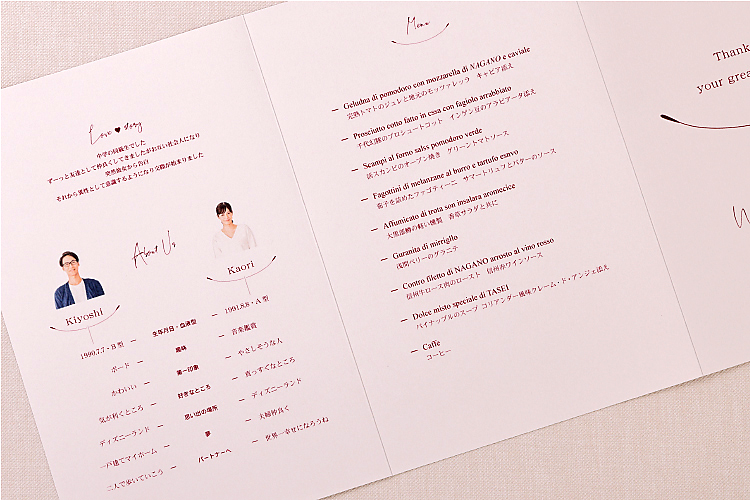 Love ♥ story
中学の同級生でした
ずーっと友達として仲良くしてきましたがお互い社会人になり
突然彼女から告白
それから異性として意識するようになり交際が始まりました
About Us
Kiyoshi
Kaori
1990.7.7・B型 ― 生年月日・血液型 ― 1991.8.8・A型
ボード ― 趣味 ― 音楽鑑賞
かわいい ― 第一印象 ― やさしそうな人
気が利くところ ― 好きなところ ― 真っすぐなところ
ディズニーランド ― 思い出の場所 ― ディズニーランド
一戸建てマイホーム ― 夢 ― 夫婦仲良く
二人で歩いていこう ― パートナーへ ― 世界一幸せになろうね
Menu
― Geludna di pomodoro con mozzarella di NAGANO e caviale
完熟トマトのジュレと地元のモッツァレッラ キャビア添え
― Prosciatto cotto fatto in cssa con fagiolo arrabbiato
千代幻豚のプロシュートコット インゲン豆のアラビアータ添え
― Scampi al forno salss pomodoro verde
活スカンピのオーブン焼き グリーントマトソース
― Fagottini di melanzane al burro e tartufo esavo
茄子を詰めたファゴティーニ サマートリュフとバターのソース
― Affumicato di trota son insalara aromecice
大黒部鱒の軽い燻製 香草サラダと共に
― Guranita di mirriglio
浅間ベリーのグラニテ
― Contro filetto di NAGANO arrosto al vino rosso
信州牛ロース肉のロースト 信州赤ワインソース
― Dolce misto speciale di TASEI
パイナップルのスープ コリアンダー風味クレーム・ド・アンジェ添え
― Caffe
コーヒー
Thank
your grea